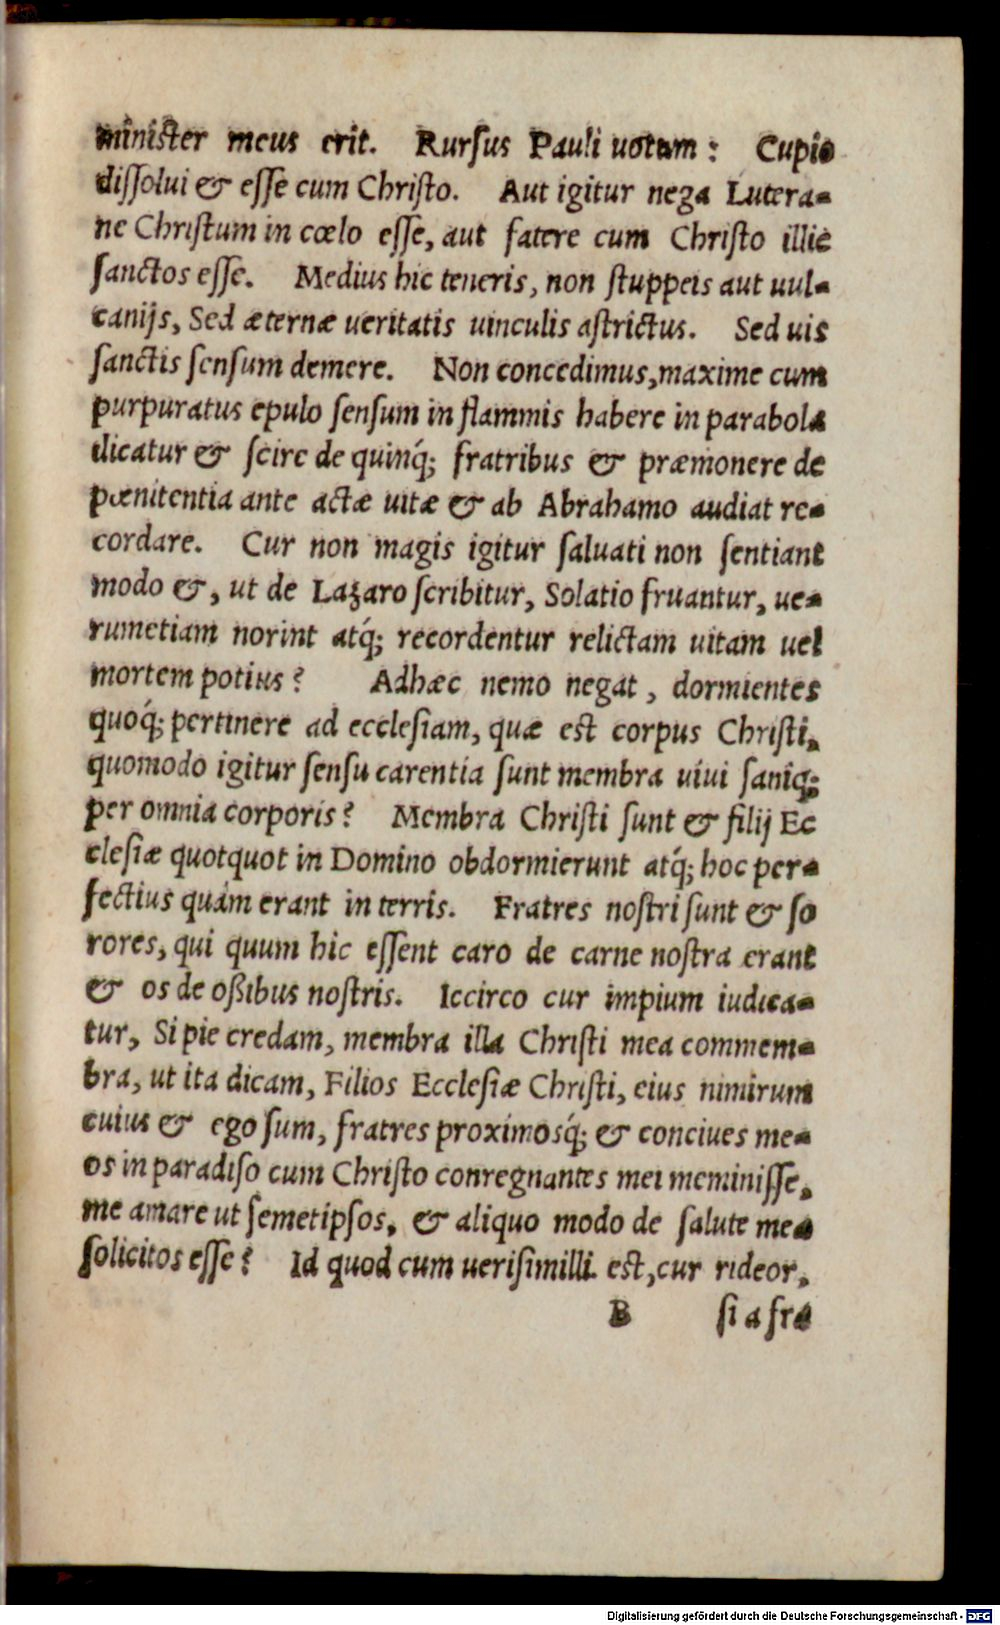 miniſter meus erit. Rurſus Pauli uotum: Cupio
diſſolui & eſſe cum Chriſto. Aut igitur nega Lutera-
ne Chriſtum in cœlo eſſe, aut fatere cum Chriſto illic
ſanctos eſſe. Medius hic teneris, non ſtuppeis aut uul-
canijs, Sed æternæ ueritatis uinculis aſtrictus. Sed uis
ſanctis ſenſum demere. Non concedimus, maxime cum
purpuratus epulo ſenſum in flammis habere in parabola
dicatur & ſcire de quinq́; fratribus & præmonere de
pœnitentia ante actæ uitæ & ab Abrahamo audiat re-
cordare. Cur non magis igitur ſaluati non ſentiant
modo &, ut de Lazaro ſcribitur, Solatio fruantur, ue-
rumetiam norint atq́; recordentur relictam uitam uel
mortem potius? Adhæc nemo negat, dormientes
quoq́; pertinere ad eccleſiam, quæ eſt corpus Chriſti,
quomodo igitur ſenſu carentia ſunt membra uiui ſaniq́;
per omnia corporis? Membra Chriſti ſunt & filij Ec
cleſiæ quotquot in Domino obdormierunt atq́; hoc per-
fectius quàm erant in terris. Fratres noſtri ſunt & ſo
rores, qui quum hic eſſent caro de carne noſtra erant
& os de oßibus noſtris. Iccirco cur impium iudica-
tur, Si pie credam, membra illa Chriſti mea commem-
bra, ut ita dicam, Filios Eccleſiæ Chriſti, eius nimirum
cuius & ego ſum, fratres proximosq́; & conciues me-
os in paradiſo cum Chriſto conregnantes mei meminiſſe,
me amare ut ſemetipſos, & aliquo modo de ſalute mea
ſolicitos eſſe? Id quod cum ueriſimilli. eſt, cur rideor,
B ſi a fra
Digitalisierung gefördert durch die Deutsche Forschungsgemeinschaft - DFG